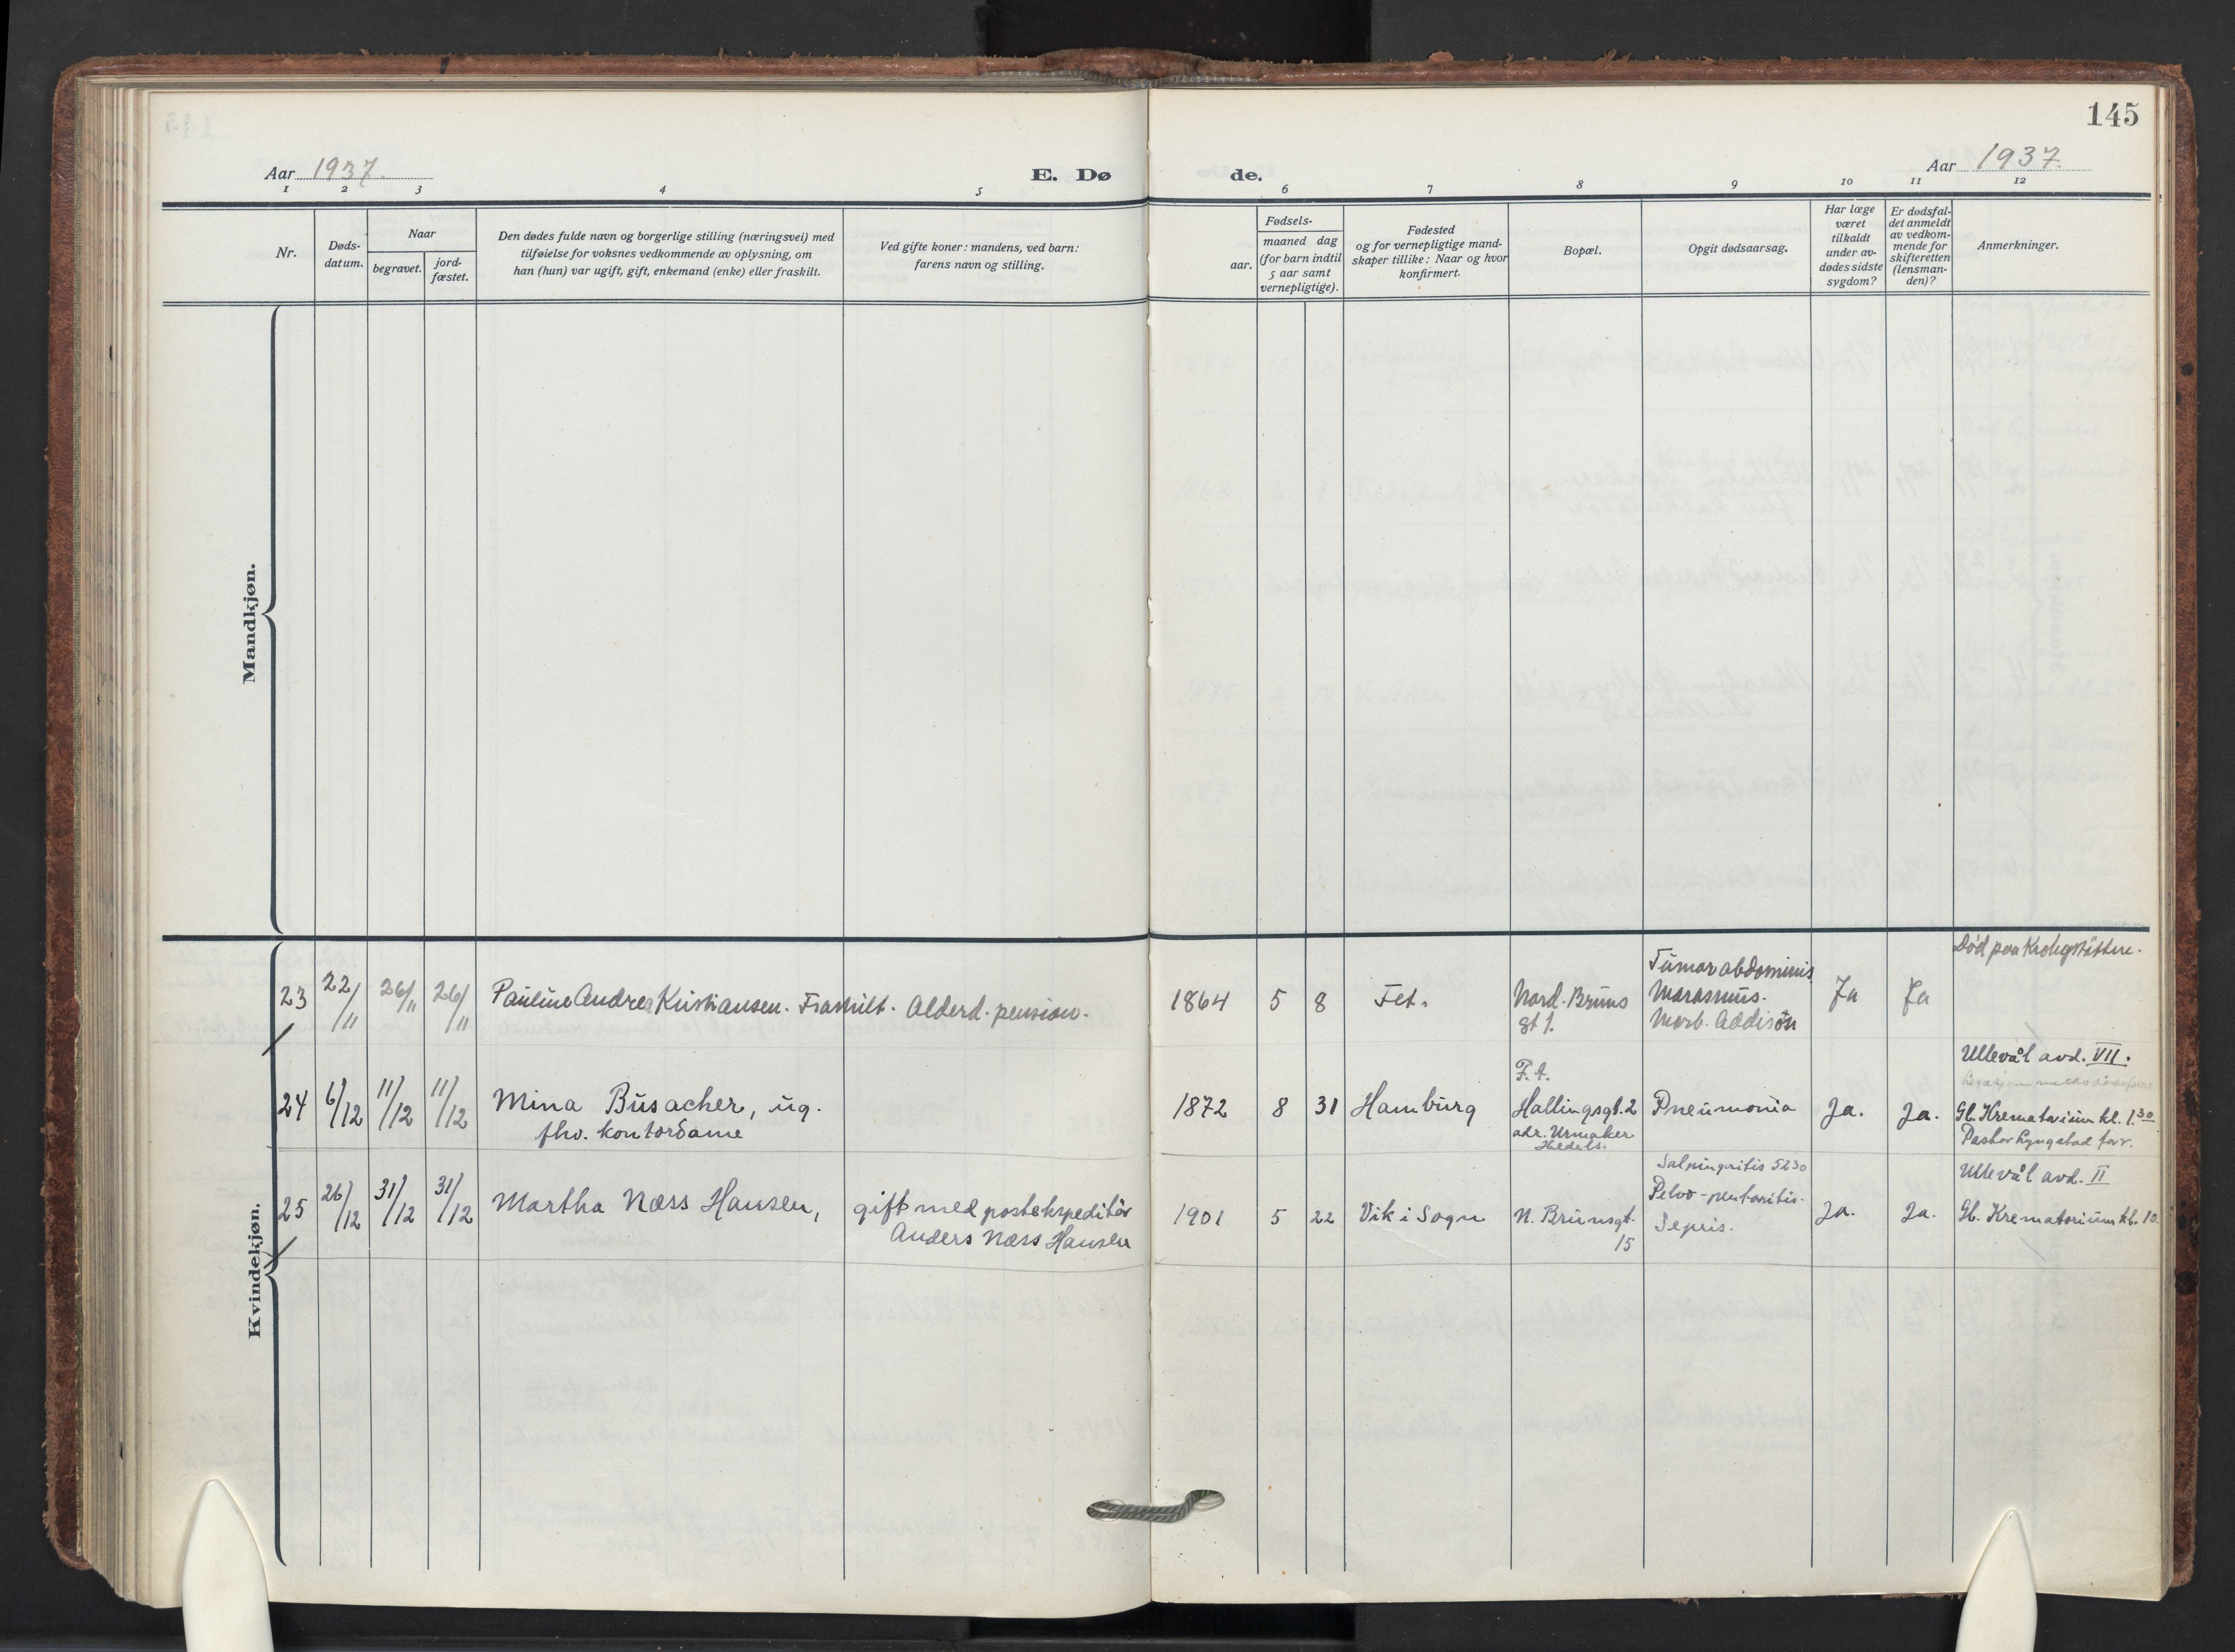 145
Aar 1937.
E. Dø
de.
Aar 1937.
1 2 3 4 5 6 7 8 9 10 11 12
Nr.
Døds-
datum.
Naar
begravet.
jord-
fæstet.
Den dødes fulde navn og borgerlige stilling (næringsvei) med
tilføielse for voksnes vedkommende av oplysning, om
han (hun) var ugift, gift, enkemand (enke) eller fraskilt.
Ved gifte koner: mandens, ved barn:
farens navn og stilling.
Fødsels-
aar.
maaned dag
(for barn indtil
5 aar samt
vernepligtige).
Fødested
og for vernepligtige mand-
skaper tillike: Naar og hvor
konfirmert.
Bopæl.
Opgit dødsaarsag.
Har læge
været
tilkaldt
under av-
dødes sidste
sygdom?
Er dødsfal-
det anmeldt
av vedkom-
mende for
skifteretten
(lensman-
den)?
Anmerkninger.
Mandkjøn.
Kvindekjøn.
23 22/11 26/11 26/11 Pauline Andrea Kristiansen. Fraskilt. Alderd. pension.
1864 5 8 Fet.
Nord. Bruns
gt 1.
Tumor abdominis
Marasmus.
Morb. Addison
Ja Ja
Død paa Krohgstøtten.
24 6/12 11/12 11/12 Mina Busacher, ug.
fhv. kontordame
1872 8 31 Hamburg
F. A.
Hallingsgt. 2
adr. Urmaker
Pneumonia
Ja. Ja.
Ullevål avd. VII.
Gl. Krematorium kl. 1.30
Pastor Lyngstad forr.
25 26/12 31/12 31/12 Martha Næss Hansen,
gift med postekspeditør
Anders Næss Hansen
1901 5 22 Vik i Sogn
N. Brunsgt.
15
Salpingitis 5230
Pelvo-
Sepsis.
Ja. Ja.
Ullevål avd. II
Gl. Krematorium kl. 10.